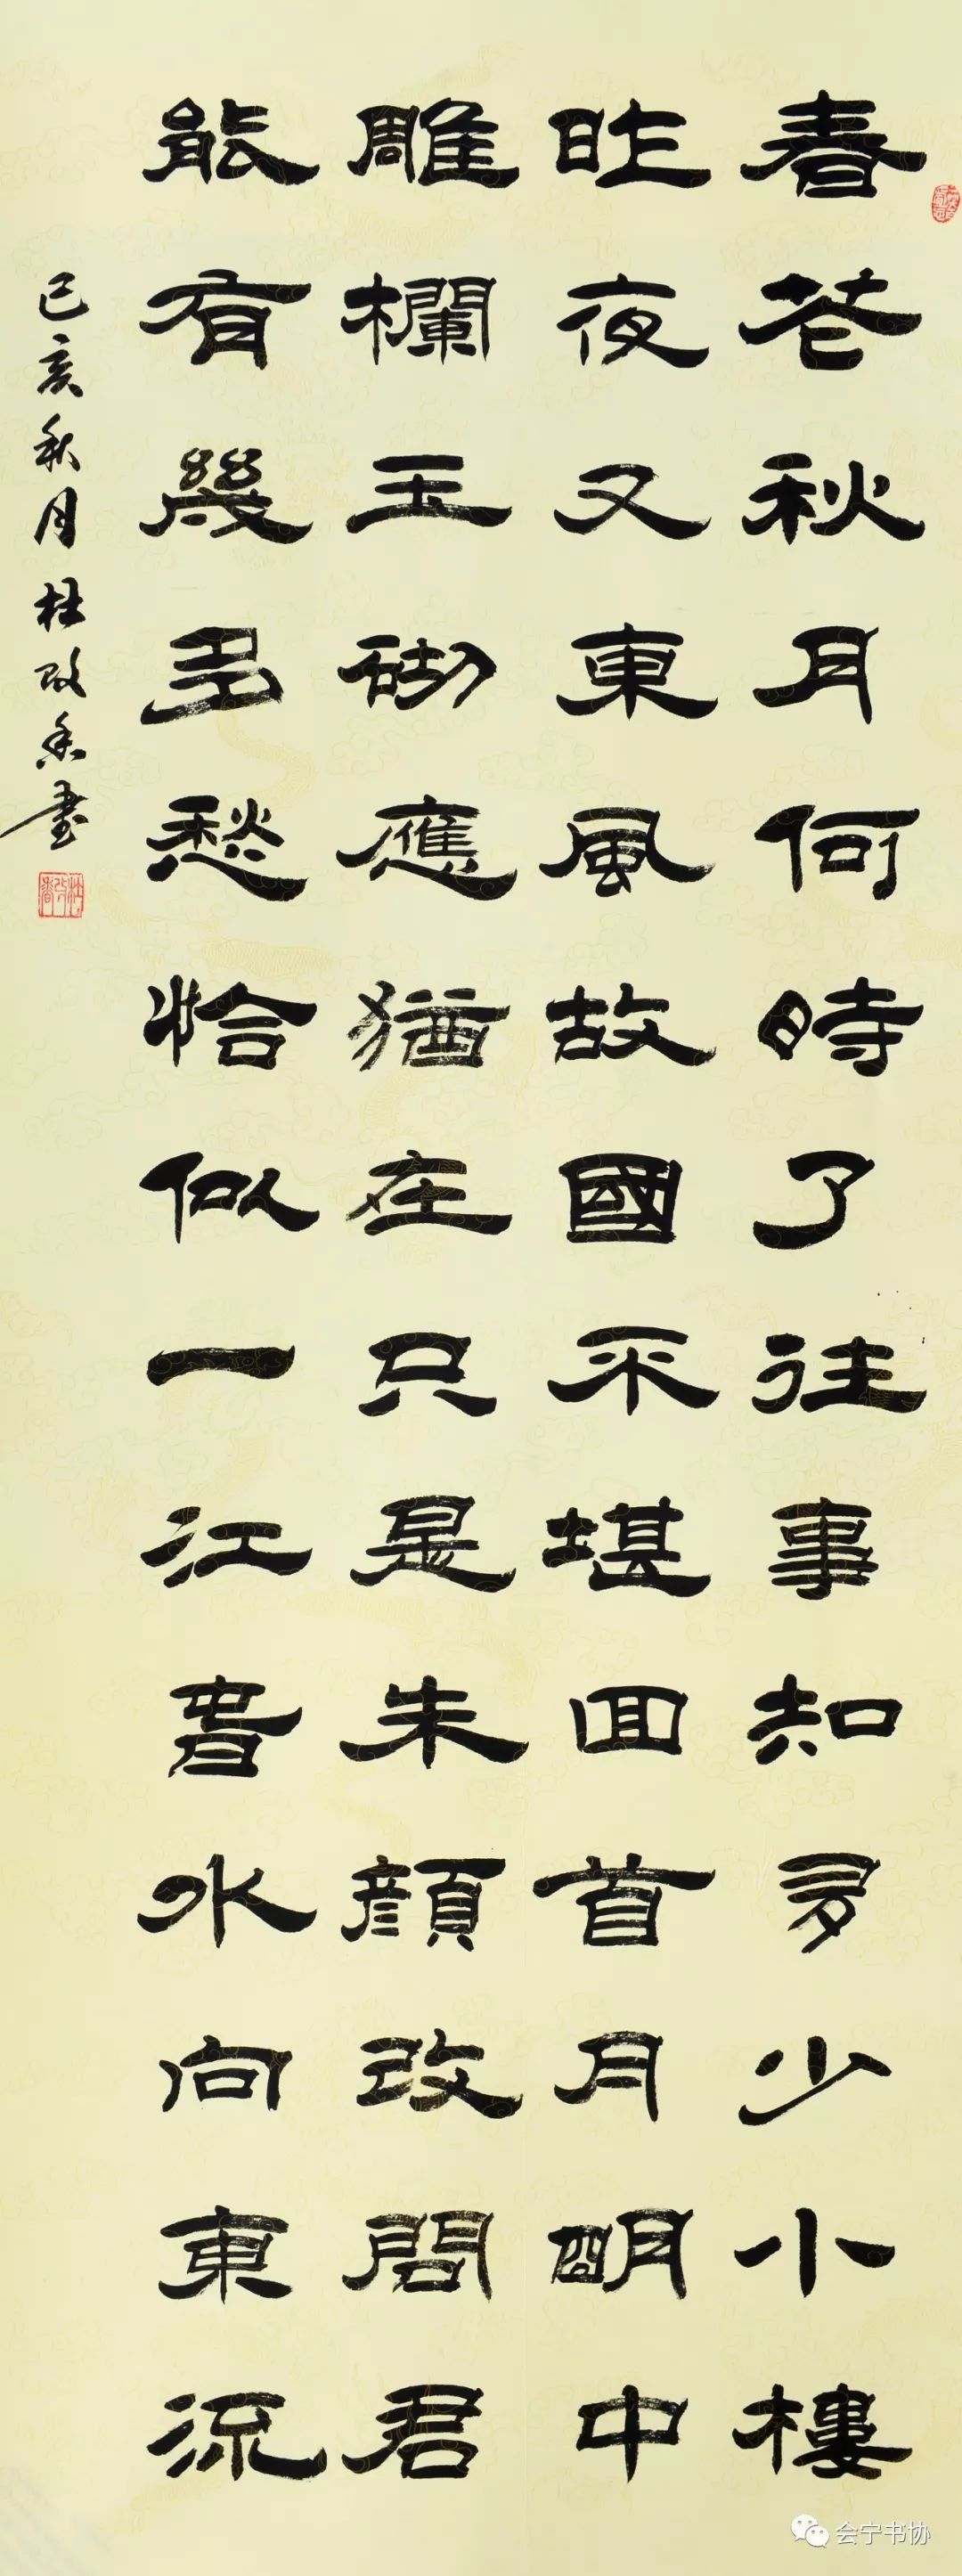 春花秋月何時了往事知多少小樓
昨夜又東風故國不堪回首月明中
雕欄玉砌應猶在只是朱顏改問君
能有幾多愁恰似一江春水向東流
己亥秋月杜改香書
杜改香
会宁书协